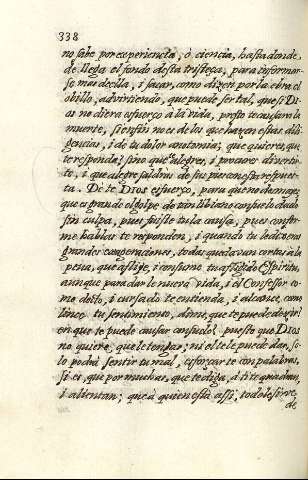 338
no sabe por experiencia, ò ciencia, hasta donde,
de llega el fondo desta tristeça, para informar-
se mas della, i sacar, como dizen por la ebra el
obillo, advirtiendo, que puede ser tal, que si Di-
os no diera esfuerço à la vida, presto causara la
muerte, i en fin no es de lo que hazen estas dili
gencias, i de tu dolor anatomia; que quieres, que
te responda? sino que te alegres, i procures diverti
te, i que alegre saldras de sus piernas a respues-
ta. De te Dios esfuerço, para que no desmayes
que es grande el golpe de un
sin culpa, pues fuiste tu la causa, pues confor
me hablas te responden, i quando tu
grandes exageraciones, todas quedavan cortas à la
pena, que aflije, i consume tu afligido Espiritu,
aunque para darle nueva vida, i el Confessor co-
mo docto, i cursado te entienda, i alcance, como
lince tu sentimiento, dime, que te puede dezir?
en que te puede causar consuelo? puesto que Dios
no quiere, que le tengas; ni el te le puede dar, so-
lo podrà sentir tu mal, esforçarte con palabras,
si es, que por muchas, que te diga, à ti te quadran,
i alientan; que à quien està assi, todo le sirve
de